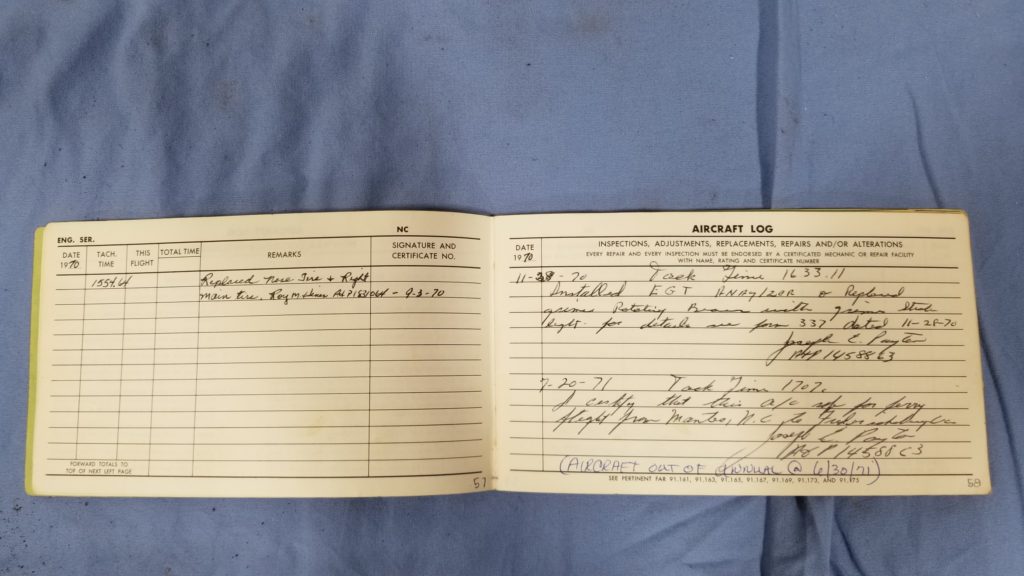 ENG. SER.
NC
DATE
1970
TACH.
TIME
THIS
FLIGHT
TOTAL TIME
REMARKS
SIGNATURE AND
CERTIFICATE NO.
Replaced Nose Tire & Right
main tire. Roy M. - 9-3-70
FORWARD TOTALS TO
TOP OF NEXT LEFT PAGE
57
AIRCRAFT LOG
DATE
1970
INSPECTIONS, ADJUSTMENTS, REPLACEMENTS, REPAIRS AND/OR ALTERATIONS
EVERY REPAIR AND EVERY INSPECTION MUST BE ENDORSED BY A CERTIFICATED MECHANIC OR REPAIR FACILITY
WITH NAME, RATING AND CERTIFICATE NUMBER
11-28-70 Tack Time 1633.11
Installed EGT & Replaced
grimes Rotating with grimes
light. for details see form 337 dated 11-28-70
Joseph C. Payton
A&P 1458863
7-20-71 Tack Time 1707.
I certify that this a/c safe for ferry
flight from Manteo, N.C. to
Joseph C. Payton
A&P 1458863
(AIRCRAFT OUT OF ANNUAL @ 6/30/71)
SEE PERTINENT FAR 91.161, 91.163, 91.165, 91.167, 91.169, 91.173, AND 91.175
58